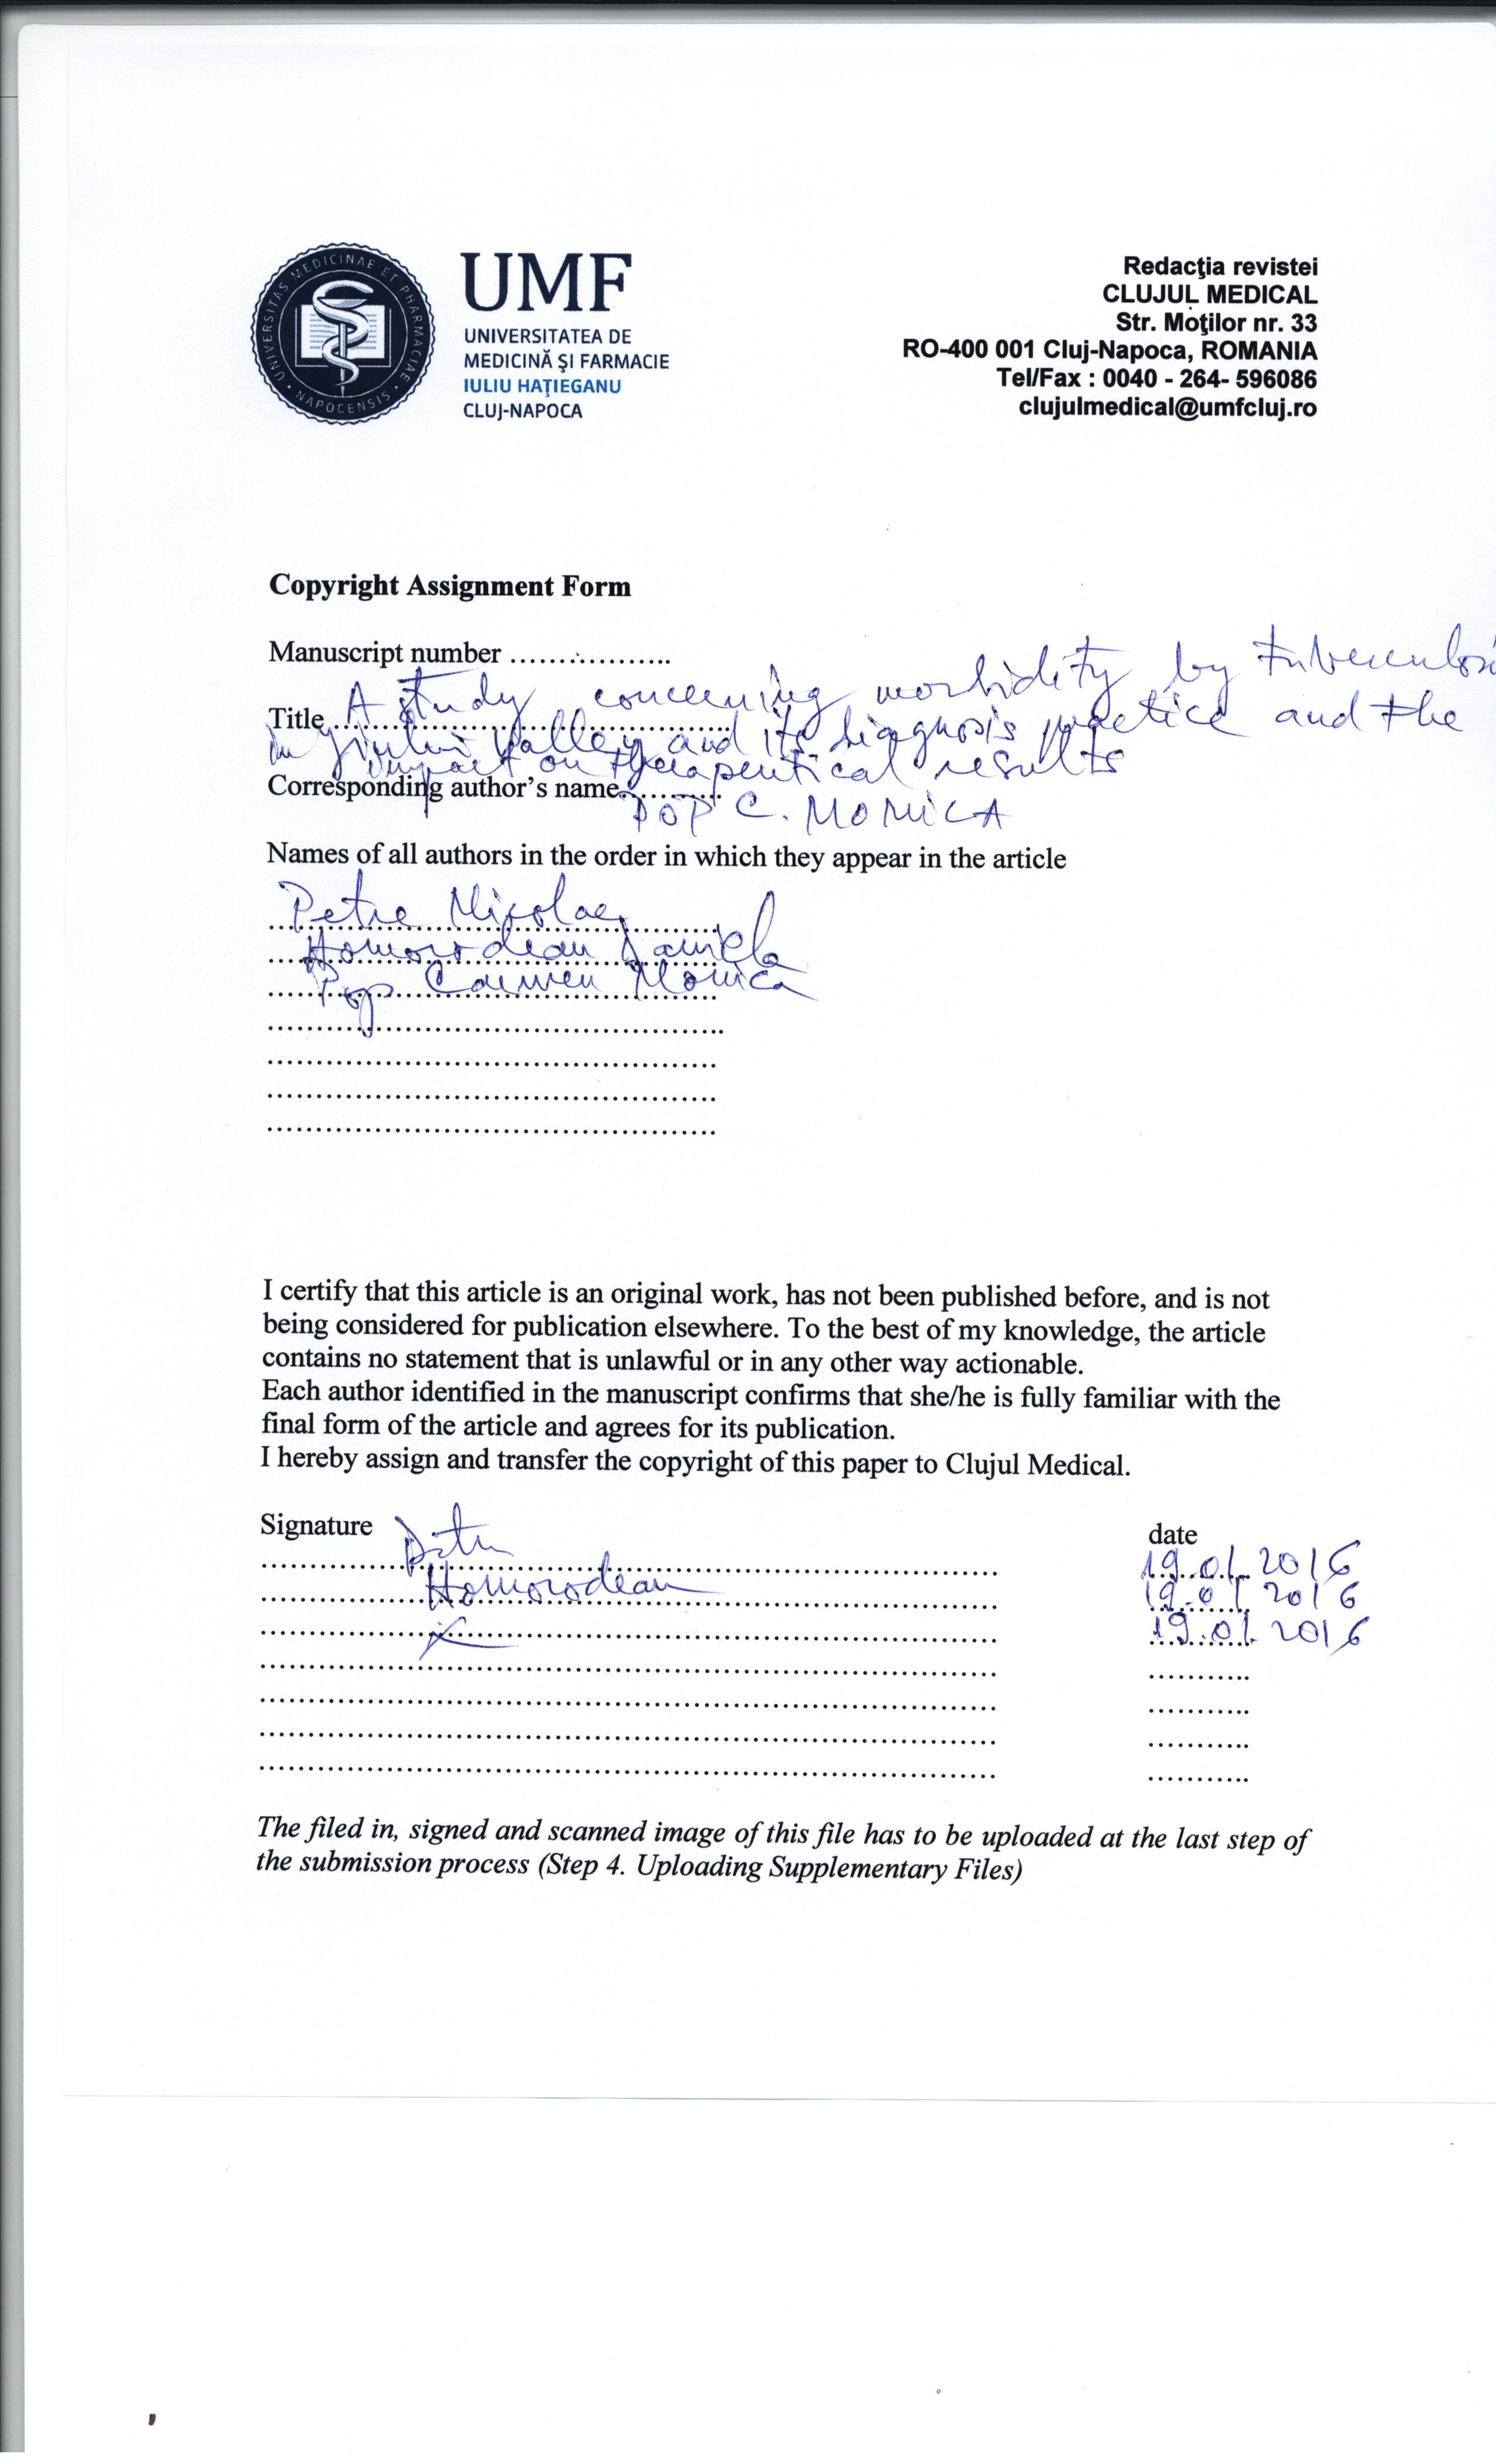 UNIVERSITAS MEDICINAE ET PHARMACIAE NAPOCENSIS
UMF
UNIVERSITATEA DE
MEDICINĂ ŞI FARMACIE
IULIU HAŢIEGANU
CLUJ-NAPOCA
Redacţia revistei
CLUJUL MEDICAL
Str. Moţilor nr. 33
RO-400 001 Cluj-Napoca, ROMANIA
Tel/Fax : 0040 - 264- 596086
clujulmedical@umfcluj.ro
Copyright Assignment Form
Manuscript number ..................
Title A study concerning morbidity by tuberculosi
in Jiului Valley and its diagnosis practice and the
impact on therapeutical results
Corresponding author's name POP C. MONICA
Names of all authors in the order in which they appear in the article
Petre Nicolae
Homorodean Daniela
Pop Carmen Monica
I certify that this article is an original work, has not been published before, and is not
being considered for publication elsewhere. To the best of my knowledge, the article
contains no statement that is unlawful or in any other way actionable.
Each author identified in the manuscript confirms that she/he is fully familiar with the
final form of the article and agrees for its publication.
I hereby assign and transfer the copyright of this paper to Clujul Medical.
Signature date
19.01.2016
Homorodean 19.01.2016
19.01.2016
The filed in, signed and scanned image of this file has to be uploaded at the last step of
the submission process (Step 4. Uploading Supplementary Files)